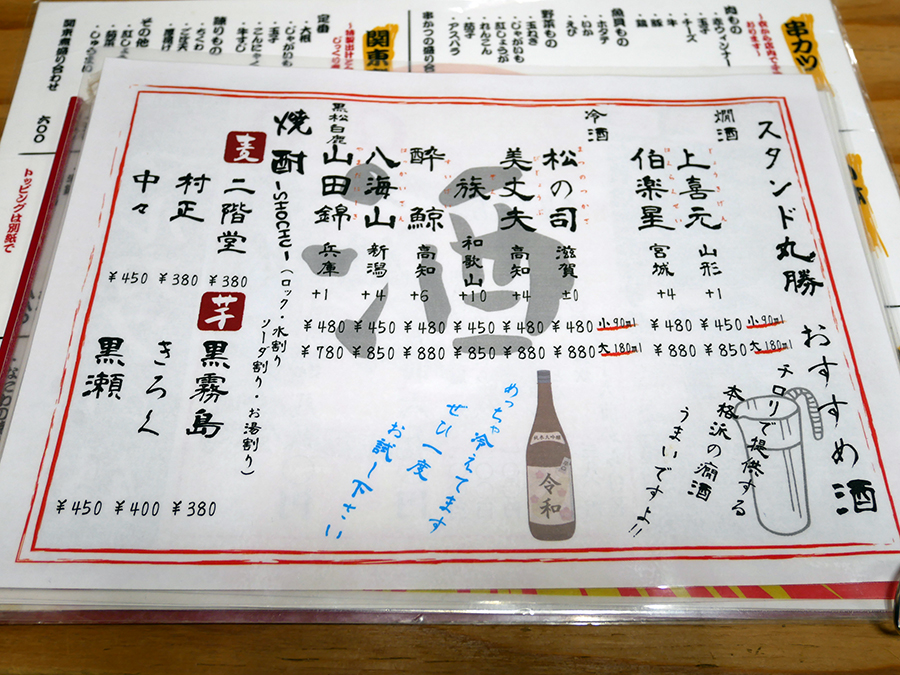 スタンド丸勝 おすすめ酒
燗酒
上喜元 山形 +1 ¥450 小90ml ¥850 大180ml
伯楽星 宮城 +4 ¥480 ¥880
チロリで提供する
本格派の燗酒
うまいですよ!!
冷酒
松の司 滋賀 ±0 ¥480 小90ml ¥880 大180ml
美丈夫 高知 +4 ¥480 ¥880
族 和歌山 +10 ¥450 ¥850
酔鯨 高知 +6 ¥480 ¥880
八海山 新潟 +4 ¥450 ¥850
黒松白鹿 山田錦 兵庫 +1 ¥480 ¥780
酒
令和
めっちゃ冷えてます
ぜひ一度
お試し下さい
焼酎-SHOCHU-(ロック・水割り
ソーダ割り・お湯割り)
麦
二階堂 ¥380
村正 ¥380
中々 ¥450
芋
黒霧島 ¥380
きろく ¥400
黒瀬 ¥450
串カツ
肉もの
・赤ウィンナー
・チーズ
・玉子
・牛
・豚
・鶏
魚貝もの
・ホタテ
・いか
・えび
野菜もの
・玉ねぎ
・じゃがいも
・紅しょうが
・れんこん
・茄子
・アスパラ
串かつの盛り合
関東
定番
・大根
・じゃがいも
・玉子
・こんにゃく
・牛すじ
練りもの
・ちくわ
・ごぼ天
・厚揚げ
その他
・紅しょ
・菊菜
・しゅう
関東煮盛り合わせ 六〇〇
トッピングは別紙で